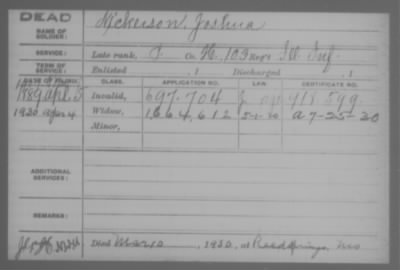 DEAD
NAME OF SOLDIER: Nickerson, Joshua
SERVICE: Late rank, P Co. H, 103 Reg't Ill. Inf.
TERM OF SERVICE: Enlisted , 1 Discharged , 1
DATE OF FILING. CLASS. APPLICATION NO. LAW CERTIFICATE NO.
1889 Apl. 5 Invalid, 697.704 918.599
1920 Apr 4 Widow, 1664,612 5-1-20 a 7-25-20
Minor,
ADDITIONAL SERVICES:
REMARKS:
Died , 19 , at Reed Springs, Mo